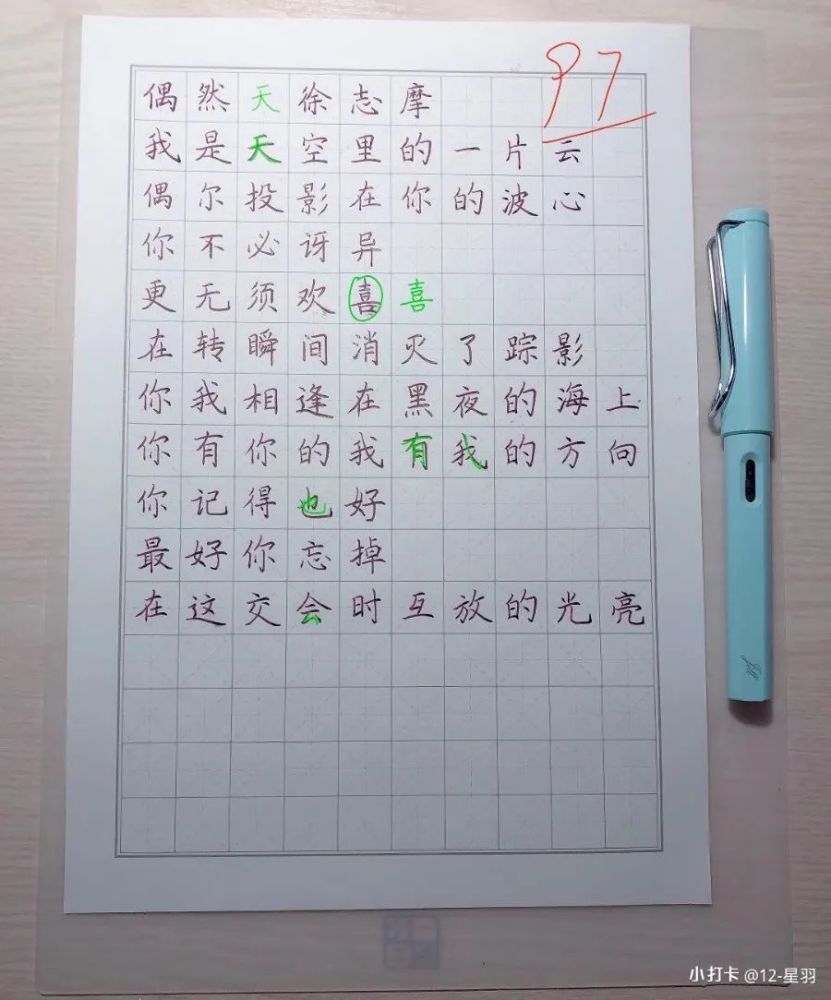 97
偶然天徐志摩
我是天空里的一片云
偶尔投影在你的波心
你不必讶异
更无须欢喜喜
在转瞬间消灭了踪影
你我相逢在黑夜的海上
你有你的我有我的方向
你记得也好
最好你忘掉
在这交会时互放的光亮
小打卡 @12-星羽